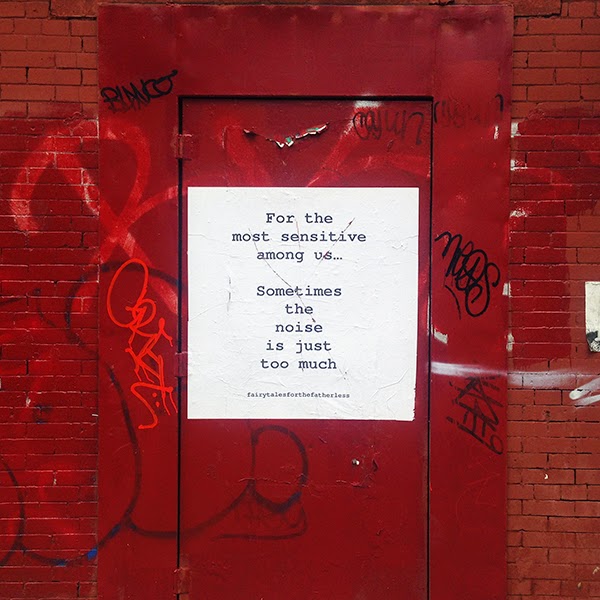 For the
most sensitive
among us...

Sometimes
the
noise
is just
too much

fairytalesforthefatherless